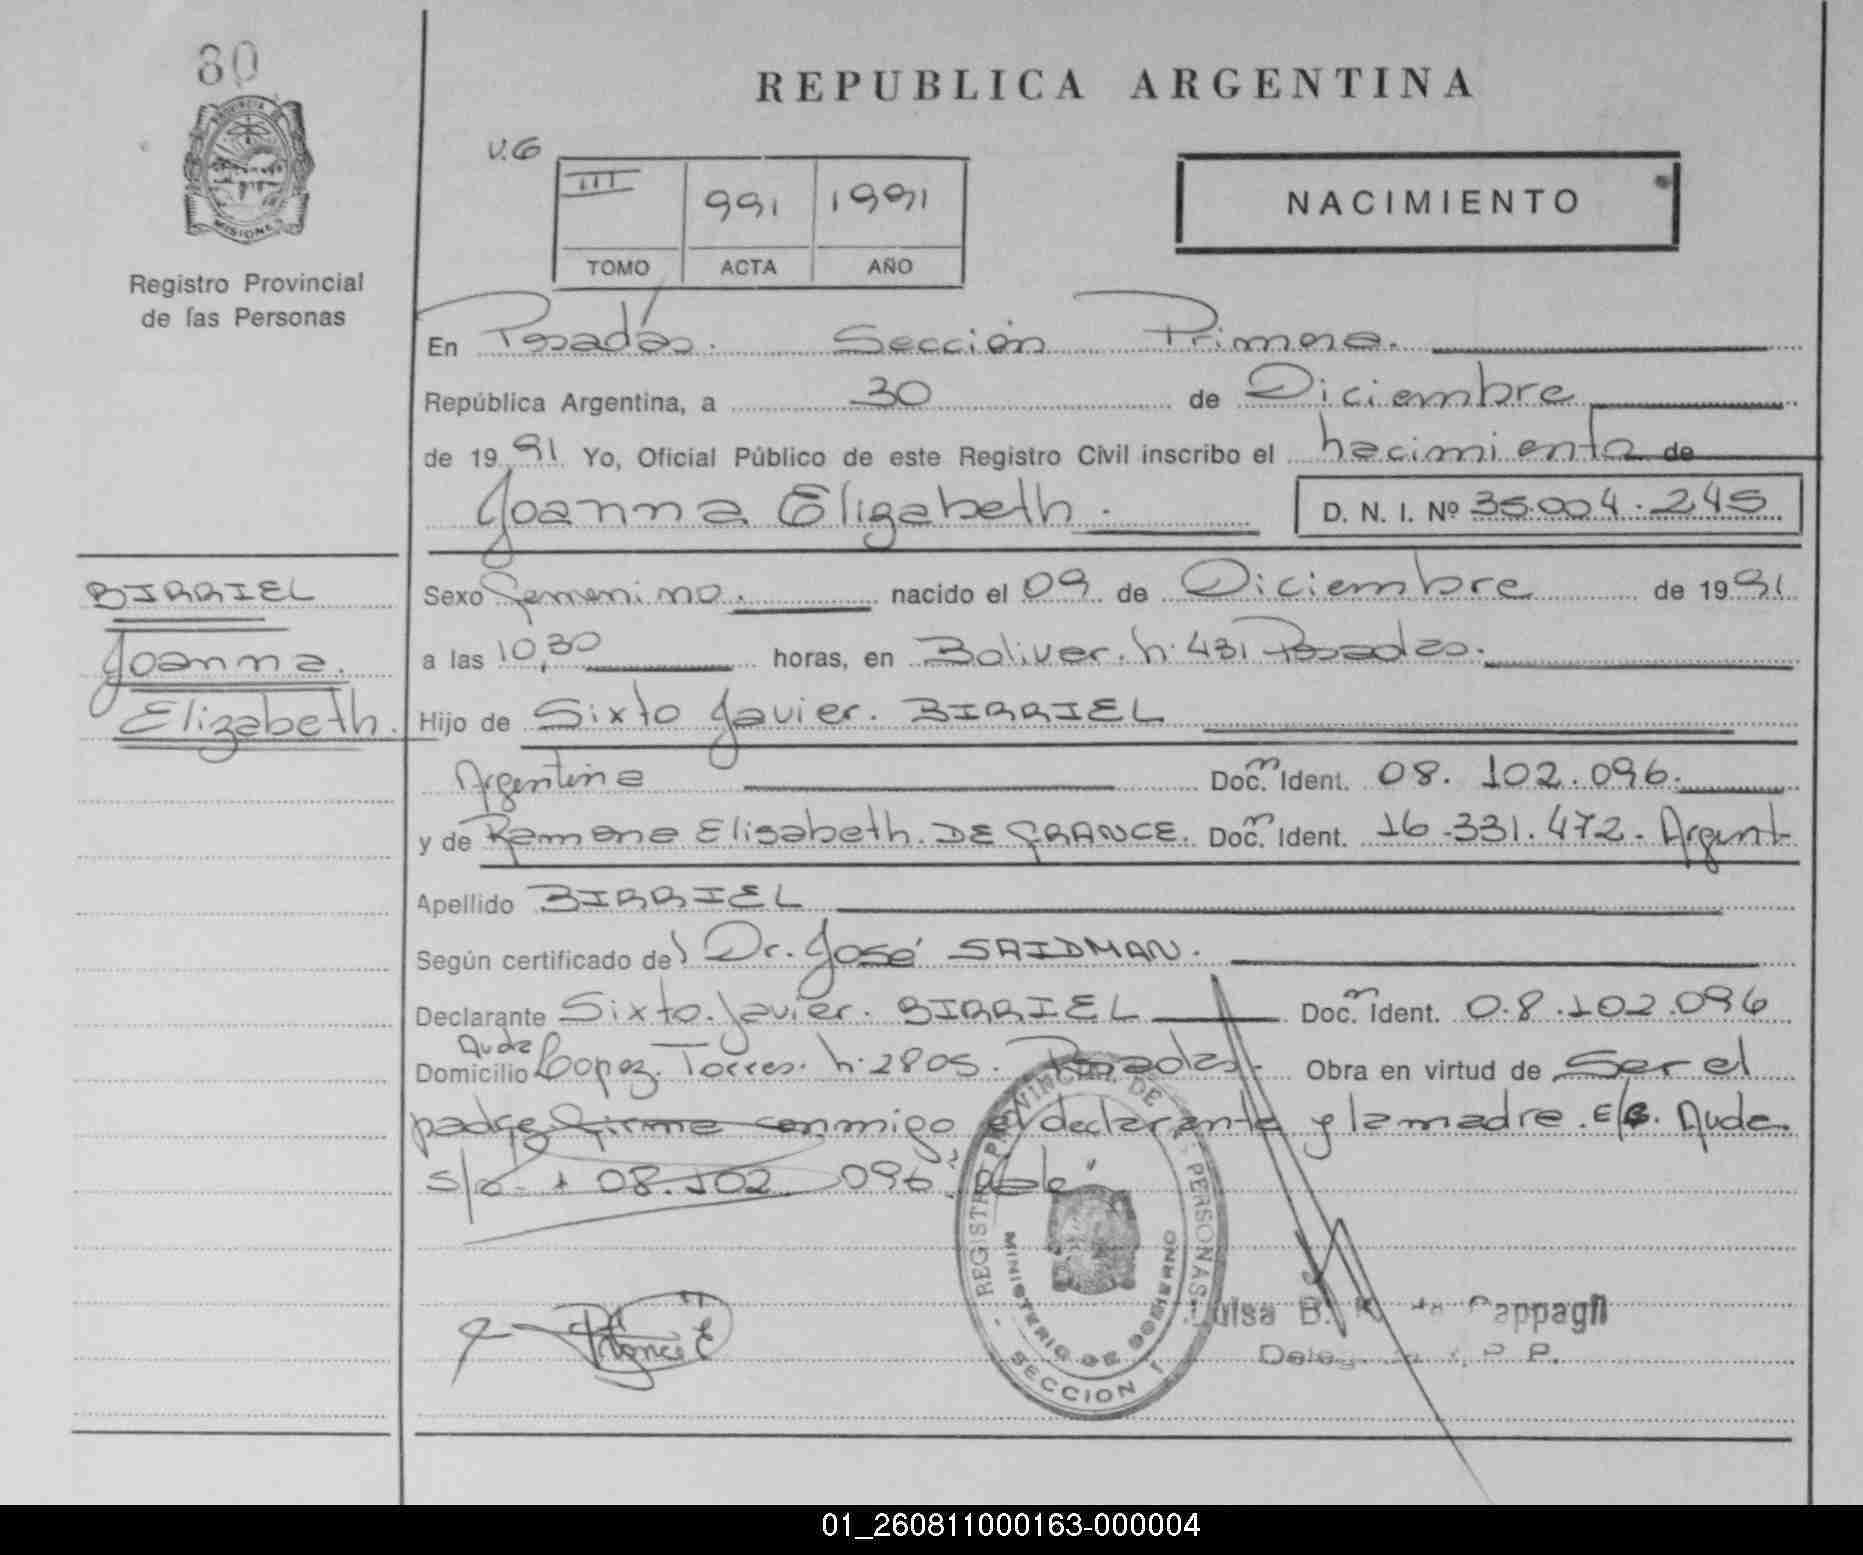 80
PROVINCIA
MISIONES
Registro Provincial
de las Personas
REPUBLICA ARGENTINA
V.G
III 991 1991
TOMO ACTA AÑO
NACIMIENTO
En Posadas. Sección Primera.
República Argentina, a 30 de Diciembre
de 1991 Yo, Oficial Público de este Registro Civil inscribo el nacimiento de
Joanna Elizabeth. D. N. I. Nº 35.004.245
BIRRIEL
Joanna.
Elizabeth.
Sexo Femenino. nacido el 09 de Diciembre de 1991
a las 10,30 horas, en Bolivar. n: 431 Posadas.
Hijo de Sixto Javier. BIRRIEL
Argentina Doc. m Ident. 08.102.096.
y de Ramona Elisabeth. DE FRANCE. Doc. m Ident. 16.331.472. Argent.
Apellido BIRRIEL
Según certificado del Dr. José SAIDMAN.
Declarante Sixto Javier. BIRRIEL Doc. m Ident. 08.102.096
Domicilio Avda Lopez Torres. n: 2805. Posadas. Obra en virtud de Ser el
padre firma conmigo el declarante y la madre. E/L. Avda.
S/R. 08.102.096 Vale
REGISTRO PROVINCIAL DE PERSONAS
MINISTERIO DE GOBIERNO
SECCION 1
Luisa B. Cappagli
01_260811000163-000004